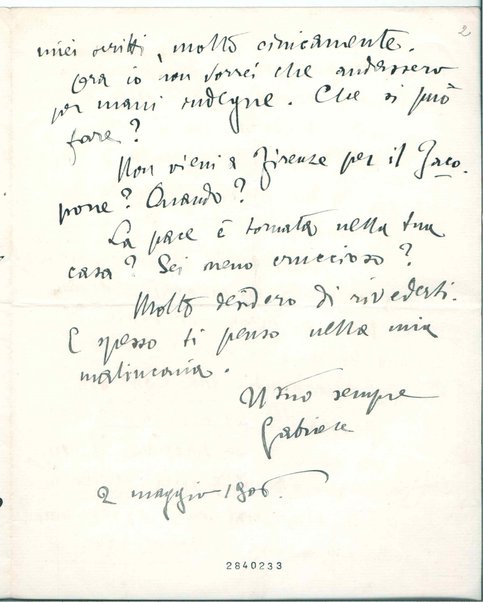 2
miei scritti, molto cinicamente.
Ora io non vorrei che andassero
per mani indegne. Che si può
fare?
Non vieni a Firenze per il Jaco-
pone? Quando?
La pace è tornata nella tua
casa? Sei meno cruccioso?
Molto desidero di rivederti.
E spesso ti penso nella mia
malinconia.
Il tuo sempre
Gabriele
2 maggio 1906.
2840233